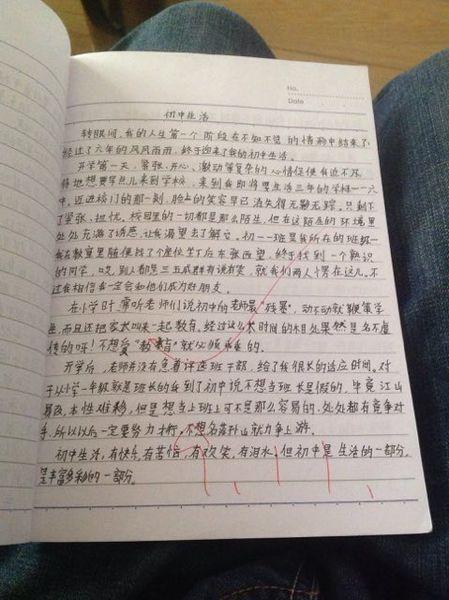 No.
Date
初中生活
转眼间,我的人生第一个阶段在不知不觉的情形中结束了,
经过了六年的风风雨雨,终于迎来了我的初中生活。
开学第一天,紧张、开心、激动等复杂的心情促使我迫不及
待地想要早点儿来到学校,来到我即将要生活三年的学校——六
中。迈进校门的那一刻,脸上的笑容早已消失得无影无踪。只剩下
了紧张、担忧。校园里的一切都是那么陌生,但在这陌生的环境里
处处充满了诱惑,让我渴望去了解它。初一一班是我所在的班级—
我在教室里随便找了个座位坐下后东张西望,终于找到一个熟识
的同学,哎,别人都是三五成群有说有笑,就我们两人愣在这儿。不
过我相信我一定会和他们成为好朋友。
在小学时常听老师们说初中的老师最"残暴",动不动就鞭策学
生,而且还把家长叫来一起教育。经过这么长时间的相处果然是名不虚
传的呀!不想受"教育"就必须乖乖的。
开学后,老师并没有急着评选班干部,给了我很长的适应时间。对
于从小学一年级就是班长的我到了初中说不想当班长是假的,毕竟江山
易改,本性难移,但是想当上班上可不是那么容易的,处处都有竞争对
手,所以以后一定要努力才行,不想名落孙山就力争上游。
初中生活,有快乐,有苦恼,有欢笑,有泪水,但初中是生活的一部分,
是丰富多彩的一部分。